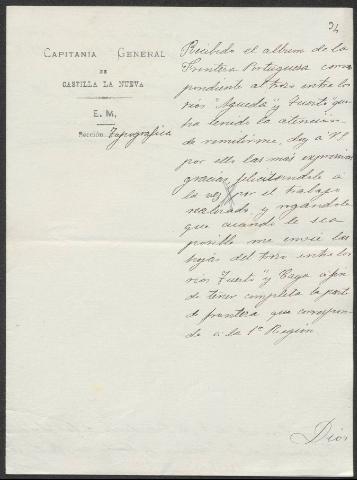 34
CAPITANÍA GENERAL
DE
CASTILLA LA NUEVA
E. M.
Sección Topográfica
Recibido el album de la
Frontera Portuguesa corres
pondiente al trozo entre los
rios "Agueda" y "Tuerto" que
ha tenido la atención
de remitirme, doy á V.
por ello las mas expresivas
gracias, felicitandole á
la vez por el trabajo
realizado y rogándole
que cuando le sea
posible me envie las
hojas del trozo entre los
rios "Tuerto" y Caya á fin
de tener completa la parte
de frontera que correspon
de a la 1ª Región.
Dios